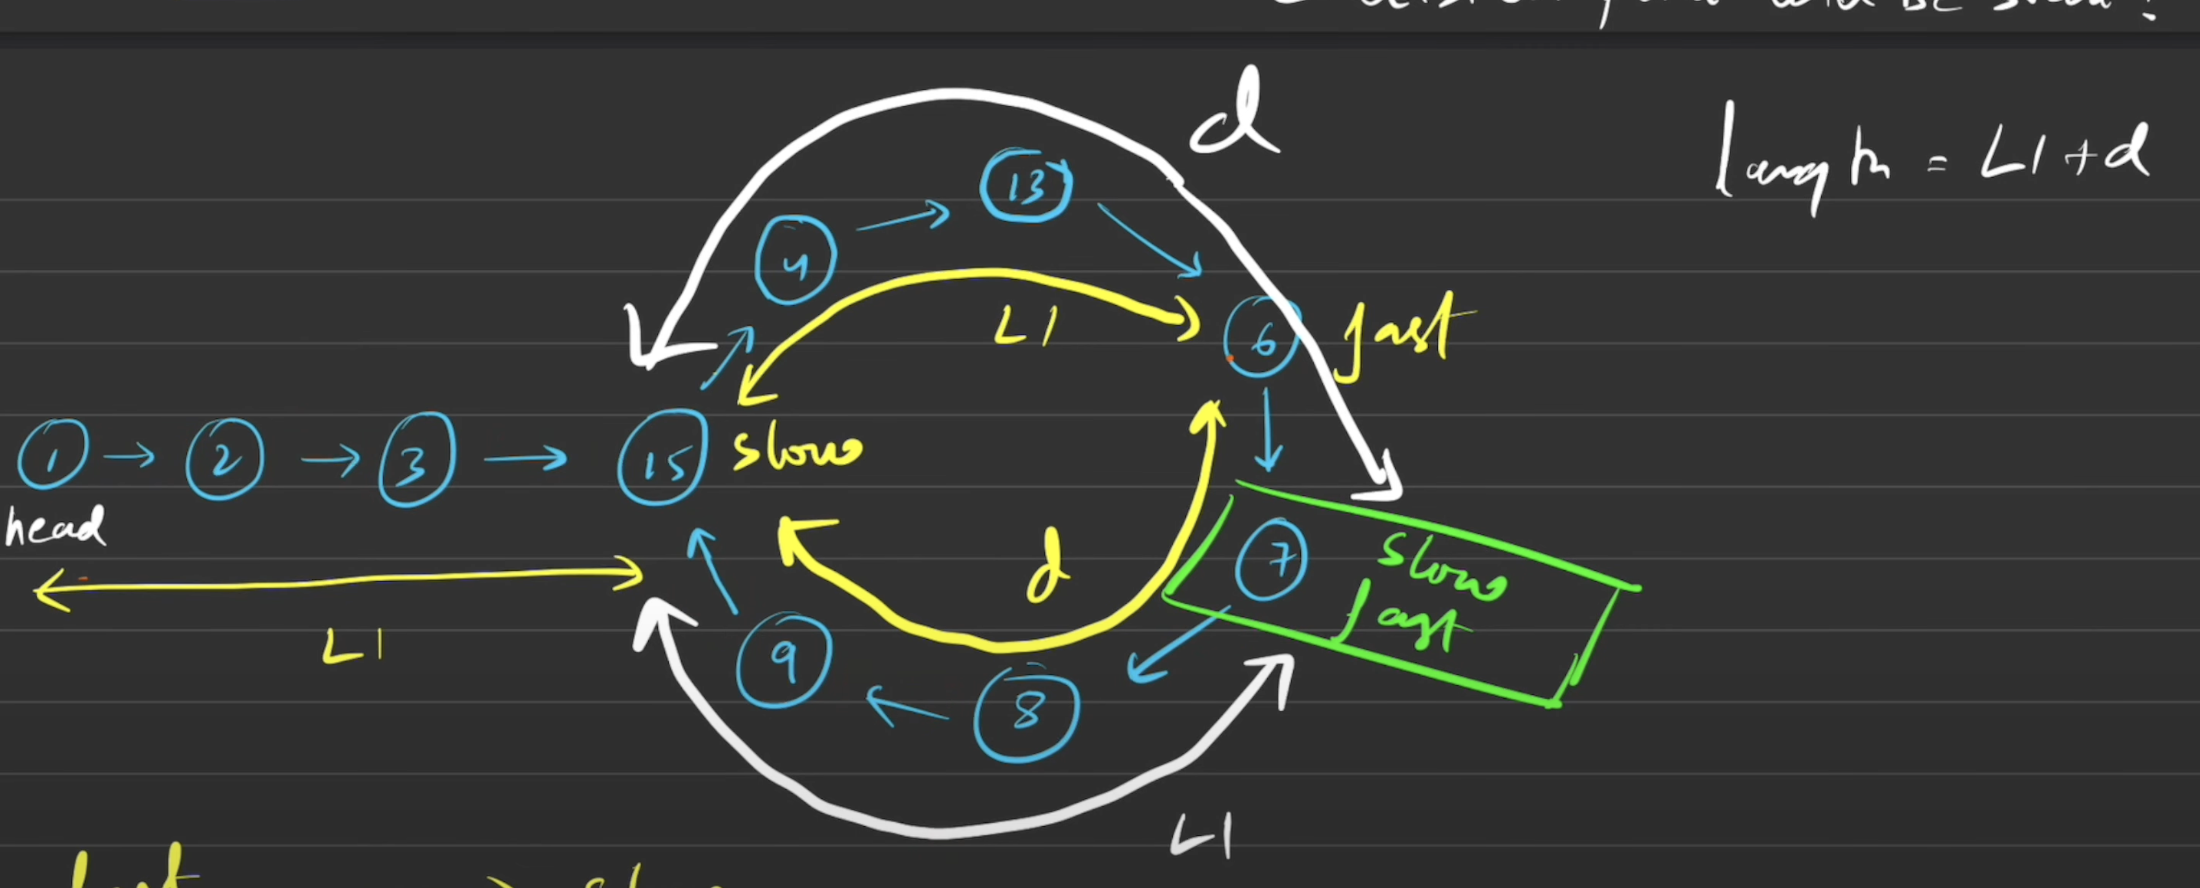 d
length = L1 + d
4 → 13
L1
6 fast
1 → 2 → 3 → 15 slow
head
L1
d
7 slow
fast
9 ← 8
L1